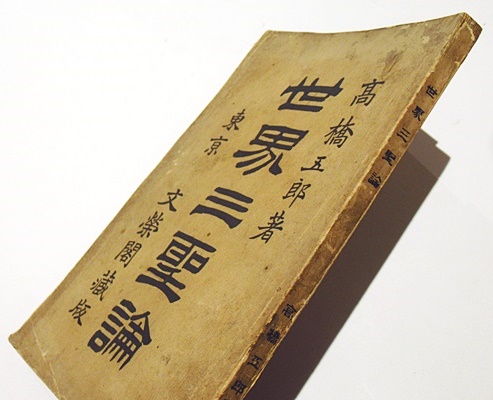 高橋五郎著
世界三聖論
東京
文榮閣藏版
世界三聖論
高橋五郎